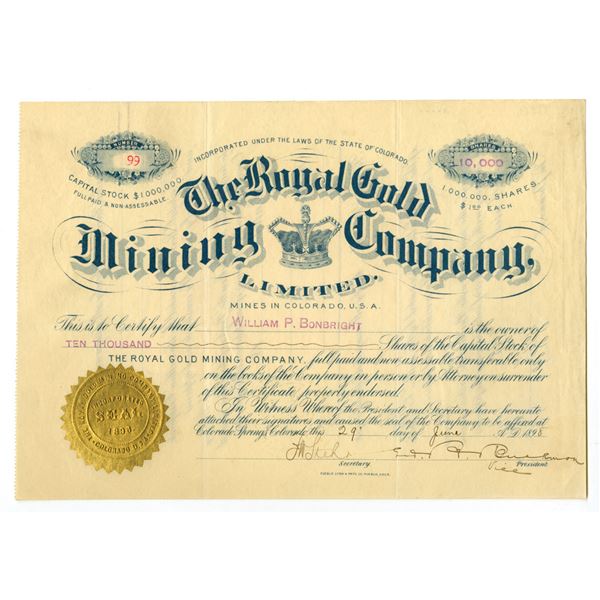 NUMBER
99
SHARES
10,000
INCORPORATED UNDER THE LAWS OF THE STATE OF COLORADO.
CAPITAL STOCK $1,000,000
FULL PAID & NON-ASSESSABLE
1,000,000, SHARES
$1.00 EACH
The Royal Gold
Mining Company,
LIMITED.
MINES IN COLORADO, U.S.A.
This is to Certify that WILLIAM P. BONBRIGHT is the owner of
TEN THOUSAND Shares of the Capital Stock of
THE ROYAL GOLD MINING COMPANY, full paid and non assessable transferable only
on the books of the Company in person or by Attorney on surrender
of this Certificate properly endorsed.
In Witness Whereof the President and Secretary have hereunto
attached their signatures and caused the seal of the Company to be affixed at
Colorado Springs, Colorado this 29 day of June A.D. 1895
INCORPORATED
SEAL
COLORADO
Secretary
Vice President